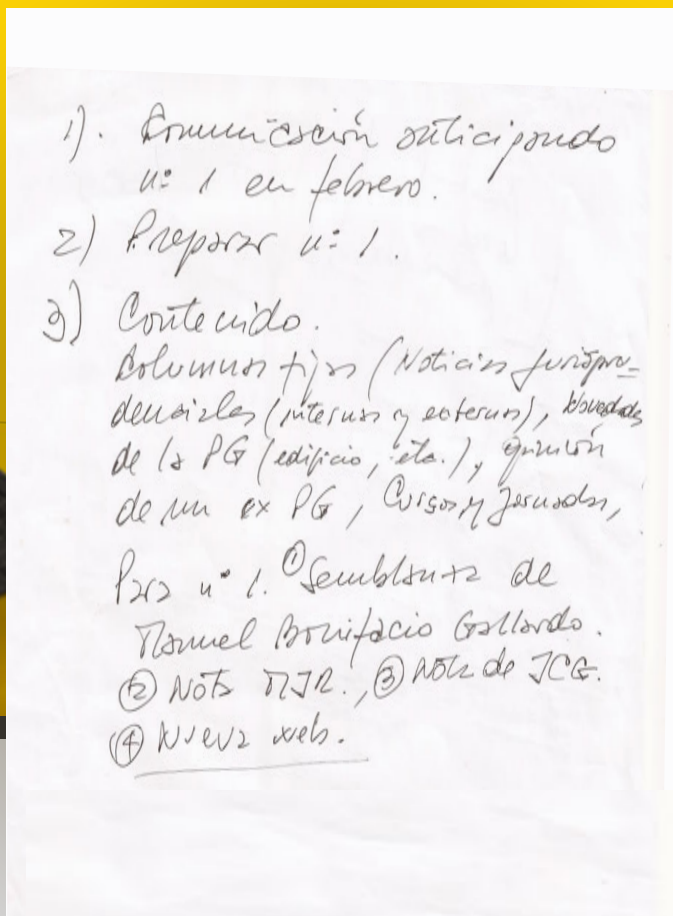 1). Comunicación anticipando
nº 1 en febrero.
2) Preparar nº 1.
3) Contenido.
Columnas fijas (Noticias Jurispru-
denciales (internas y externas), Novedades
de la PG (edificio, etc.), opinión
de un ex PG, Cursos y Jornadas,
Para nº 1. ① Semblanza de
Manuel Bonifacio Gallardo.
② Nota MJR., ③ Nota de JCG.
④ Nueva web.